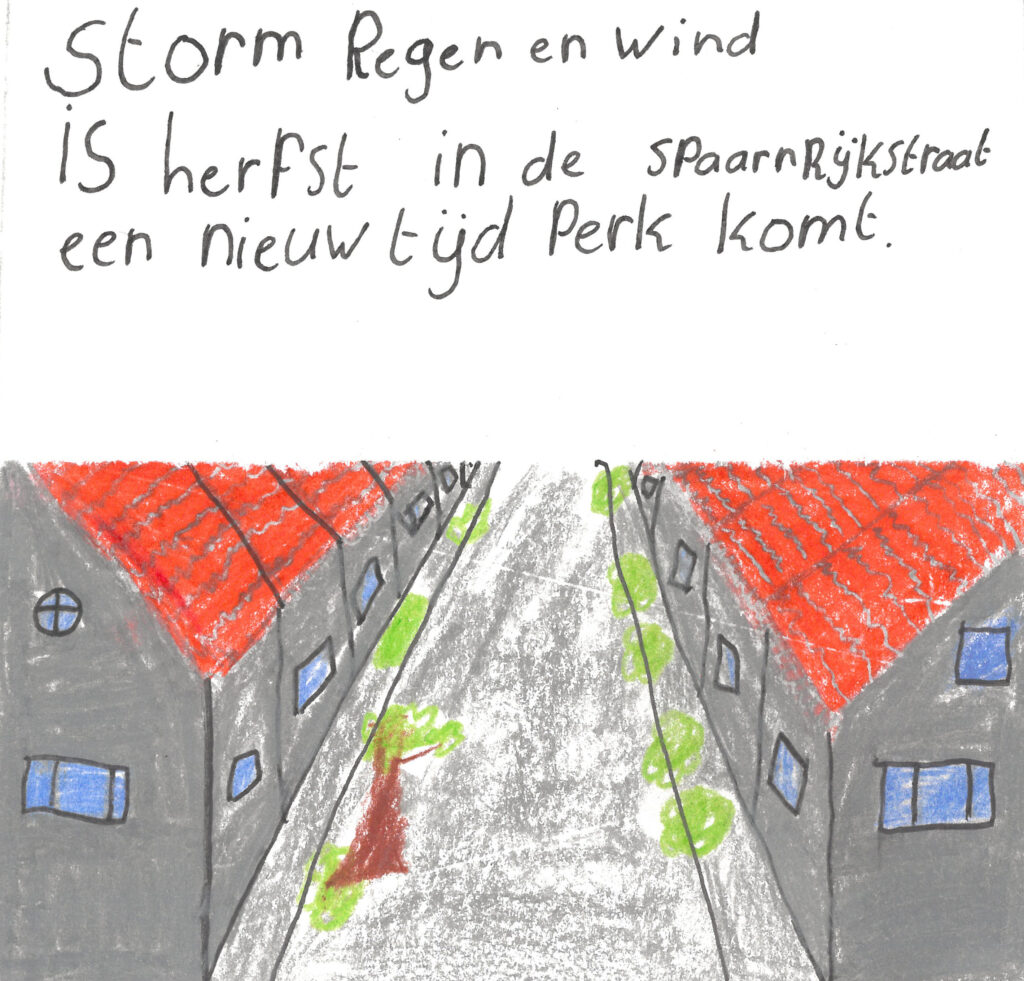 Storm Regen en wind
is herfst in de spaarnRijkstraat
een nieuw tijd Perk komt.